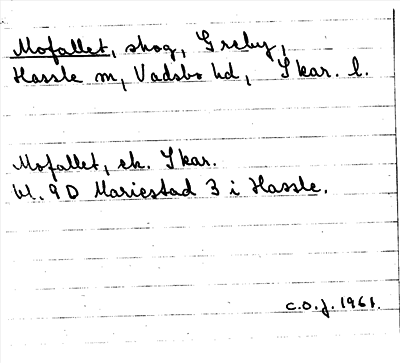 Mofallet, skog, Greby,
Hassle sn, Vadsbo hd, Skar. l.
Mofallet, ek. Skar.
bl. 9D Mariestad 3 i Hassle.
C.O.J. 1961.